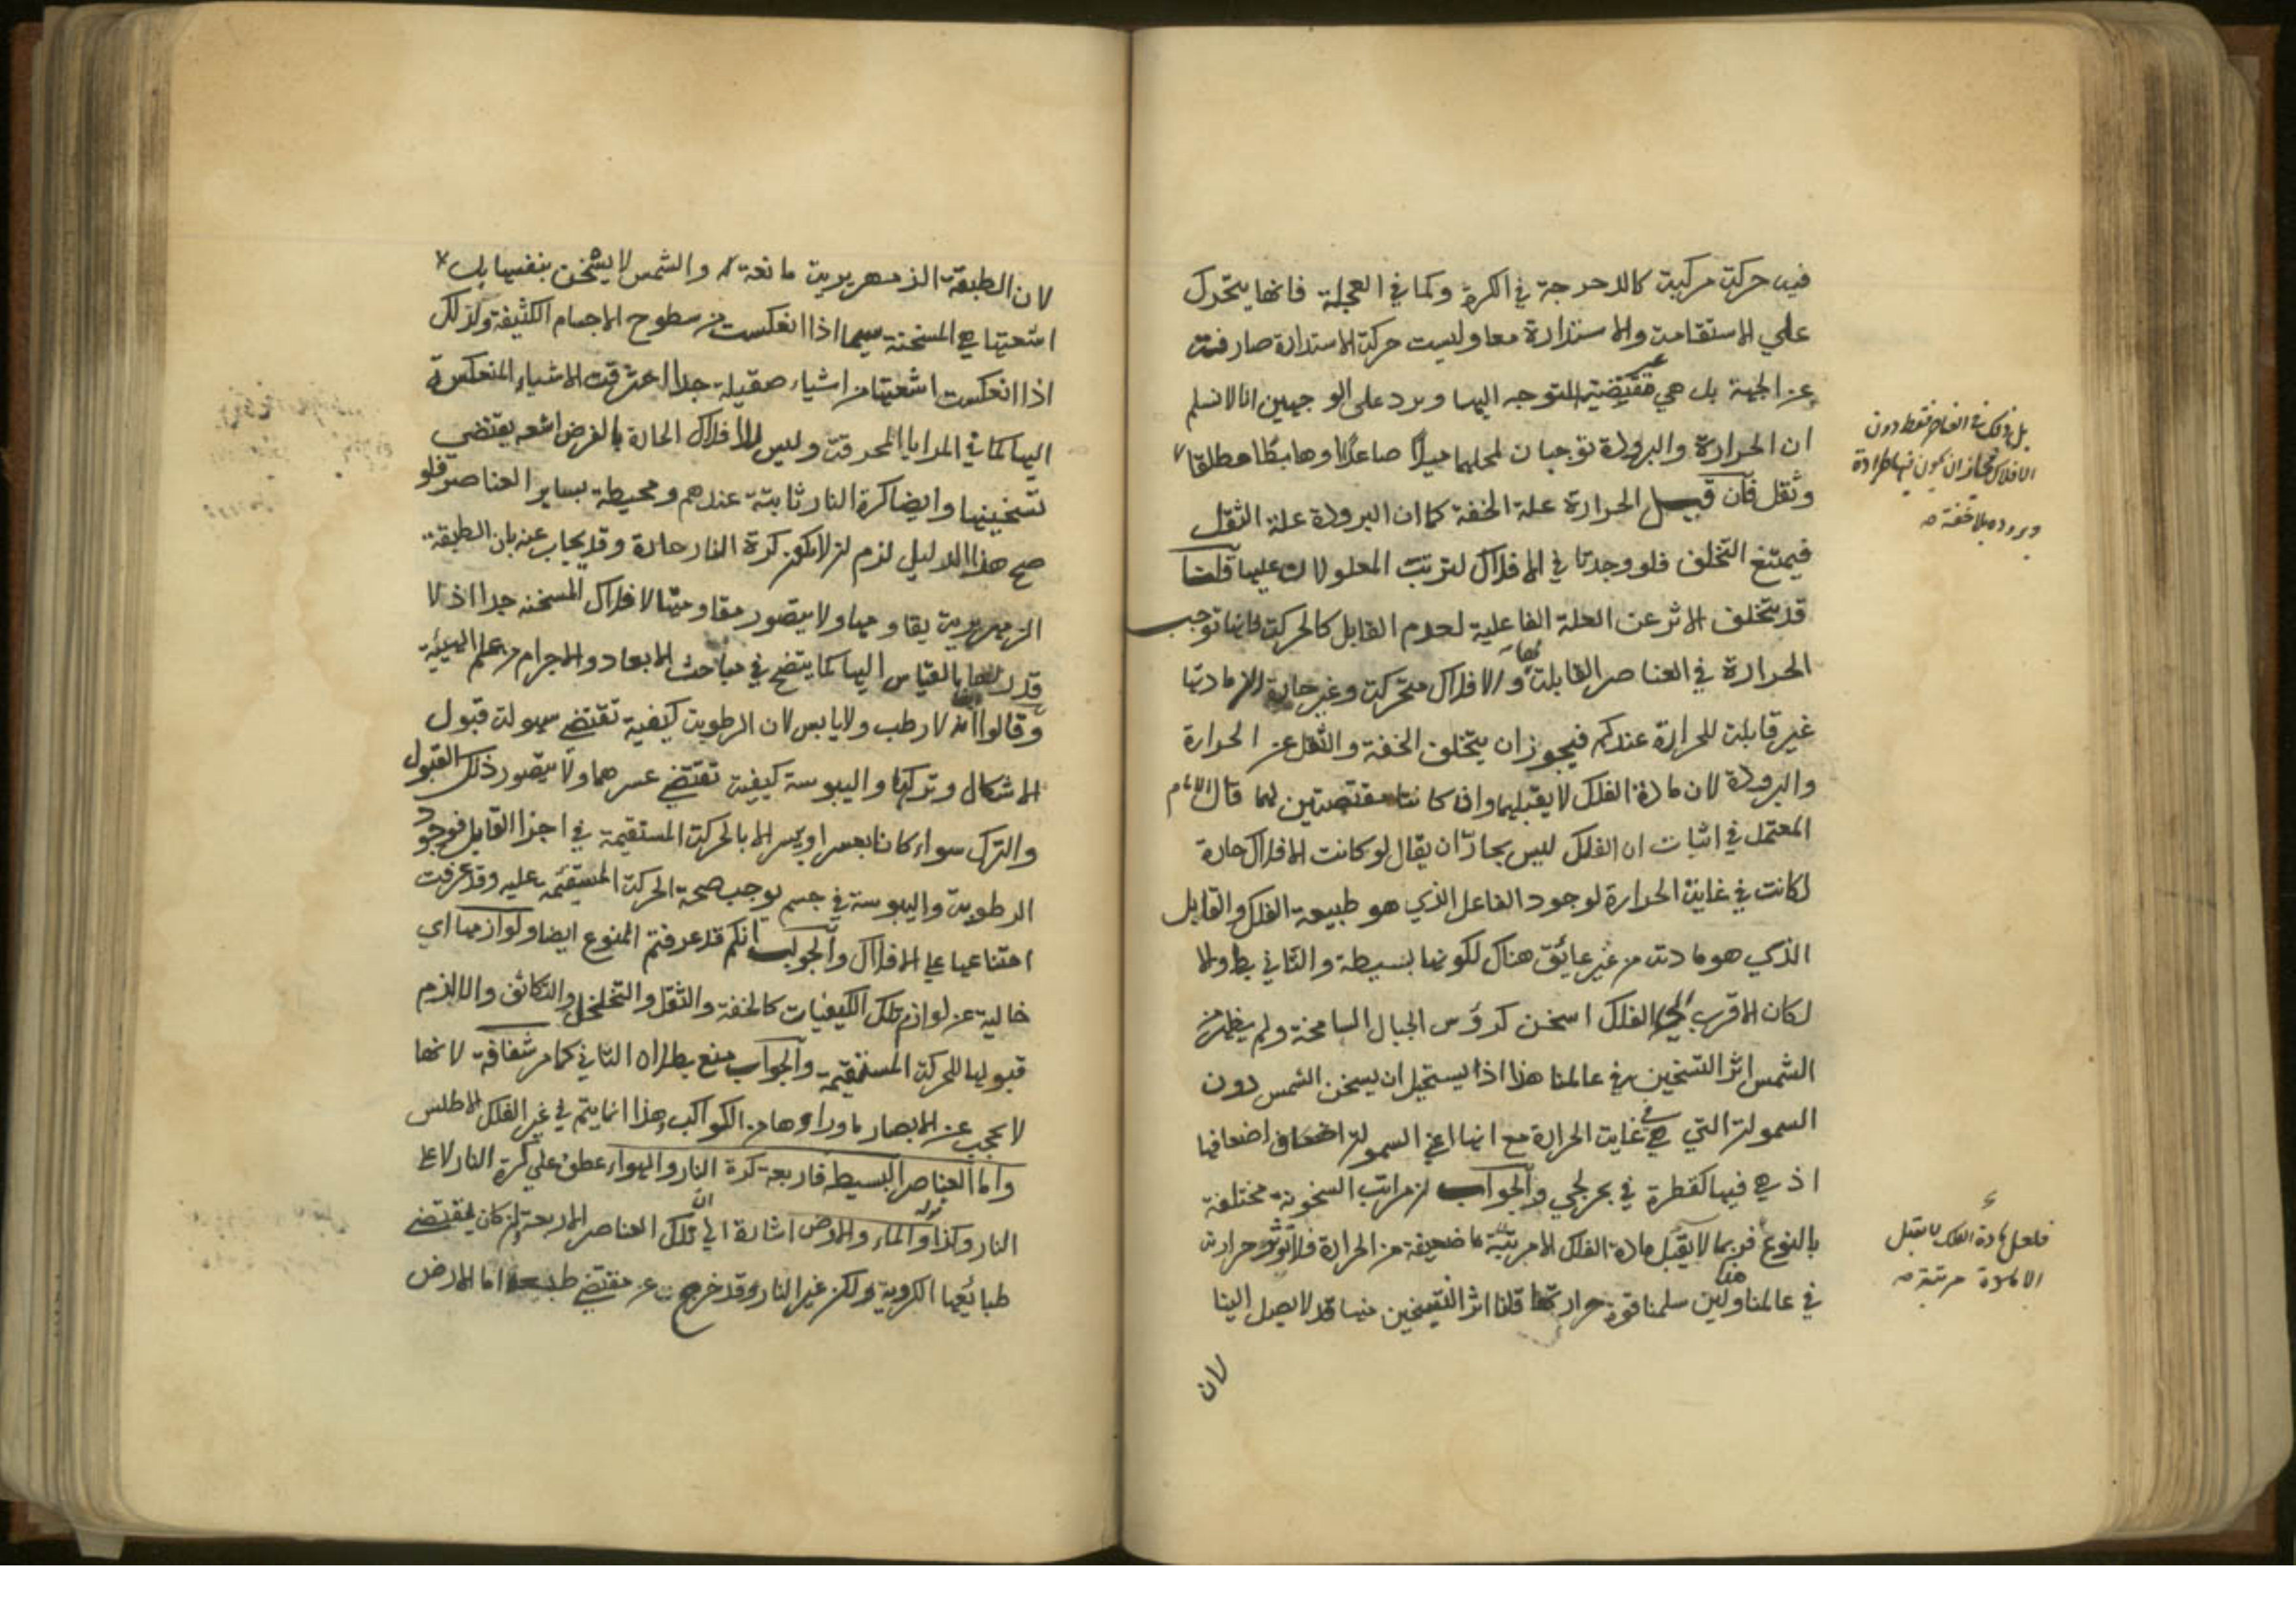 فيه حركة مركبة كالدحرجة في الكرة وكما في العجلة فانها يتحرك
علي الاستقامة والاستدارة معا وليست حركة الاستدارة صارفة
عن الجهة بل هي غير مقتضية للتوجه اليها ويرد على الوجهين انا لا نسلم
ان الحرارة والبرودة توجبان لمحليهما ميلا صاعدا وهابطا مطلقا
وثقل فان قيل الحرارة علة الخفة كما ان البرودة علة الثقل
فيمتنع التخلف فلو وجدتا في الافلاك لترتب المعلولات عليها قلنا
قد يتخلف الاثر عن العلة الفاعلية لعدم القابل كالحركة فانها توجب
الحرارة في العناصر القابلة لها والافلاك متحركة وغير حارة لان مادتها
غير قابلة للحرارة عندكم فيجوز ان يتخلف الخفة والثقل عن الحرارة
والبرودة لان مادة الفلك لا يقبلهما وان كانتا مقتضيتين لهما قال الامام
المعتمد في اثبات ان الفلك ليس بحار ان يقال لو كانت الافلاك حارة
لكانت في غاية الحرارة لوجود الفاعل الذي هو طبيعة الفلك والقابل
الذي هو مادته من غير عايق هناك لكونها بسيطة والثاني بط والا
لكان الاقرب الى الفلك اسخن كرؤس الجبال الشامخة ولم يظهر من
الشمس اثر التسخين في عالمنا هذا اذ يستحيل ان يسخن الشمس دون
السموات التي هي في غاية الحرارة مع انها اعني السموات اضعاف اضعافها
اذ هي فيها كقطرة في بحر لجي والجواب ان مراتب السخونة مختلفة
بالنوع فربما لا يقبل مادة الفلك الا مرتبة ما ضعيفة من الحرارة فلا تؤثر حرارته
في عالمنا هذا ولئن سلمنا قوة حرارتها قلنا اثر التسخين منها قد لا يصل الينا
لان
بل ذلك في العناصر فقط دون
الافلاك فجاز ان يكون فيها حرارة
وبرودة بلا خفة
فلعل مادة الفلك لا تقبل
الا مرتبة
لان الطبقة الزمهريرية مانعة والشمس لا يسخن بنفسها بل
اشعتها هي المسخنة سيما اذا انعكست من سطوح الاجسام الكثيفة ولذلك
اذا انعكست اشعتها من اشياء صقيلة جدا احترقت الاشياء المنعكسة
اليها كما في المرايا المحرقة وليس للافلاك الحارة بالفرض اشعة يقتضي
تسخينها وايضا كرة النار ثابتة عندهم ومحيطة بساير العناصر فلو
صح هذا الدليل لزم ان لا يكون كرة النار حارة وقد يجاب عنه بان الطبقة
الزمهريرية يقاومها ولا يتصور مقاومتها الافلاك المسخنة جدا اذ لا
قدر لها بالقياس اليها كما يتضح في مباحث الابعاد والاجرام من علم الهيئة
وقالوا انه لا رطب ولا يابس لان الرطوبة كيفية تقتضي سهولة قبول
الاشكال وتركها واليبوسة كيفية تقتضي عسرهما ولا يتصور ذلك القبول
والترك سواء كانا بعسر او يسر الا بالحركة المستقيمة في اجزا القابل فوجود
الرطوبة واليبوسة في جسم يوجب صحة الحركة المستقيمة عليه وقد عرفت
امتناعها على الافلاك والجواب انكم قد عرفتم المنوع ايضا ولوازمها اي
خالية عن لوازم تلك الكيفيات كالخفة والثقل والتخلخل والتكاثف والا لزم
قبولها للحركة المستقيمة والجواب منع بطلان الثاني كما مر شفافة لانها
لا يحجب عن الابصار ما وراءها من الكواكب وهذا انما يتم في غير الفلك الاطلس
واما العناصر البسيطة فاربعة كرة النار والهواء عطف على كرة النار لا على
النار وكذا والماء والارض اشارة الى ان تلك العناصر الاربعة وان كان يقتضي
طبائعها الكروية ولكن غير النار وقد خرجت عن مقتضى طبيعه اما الارض